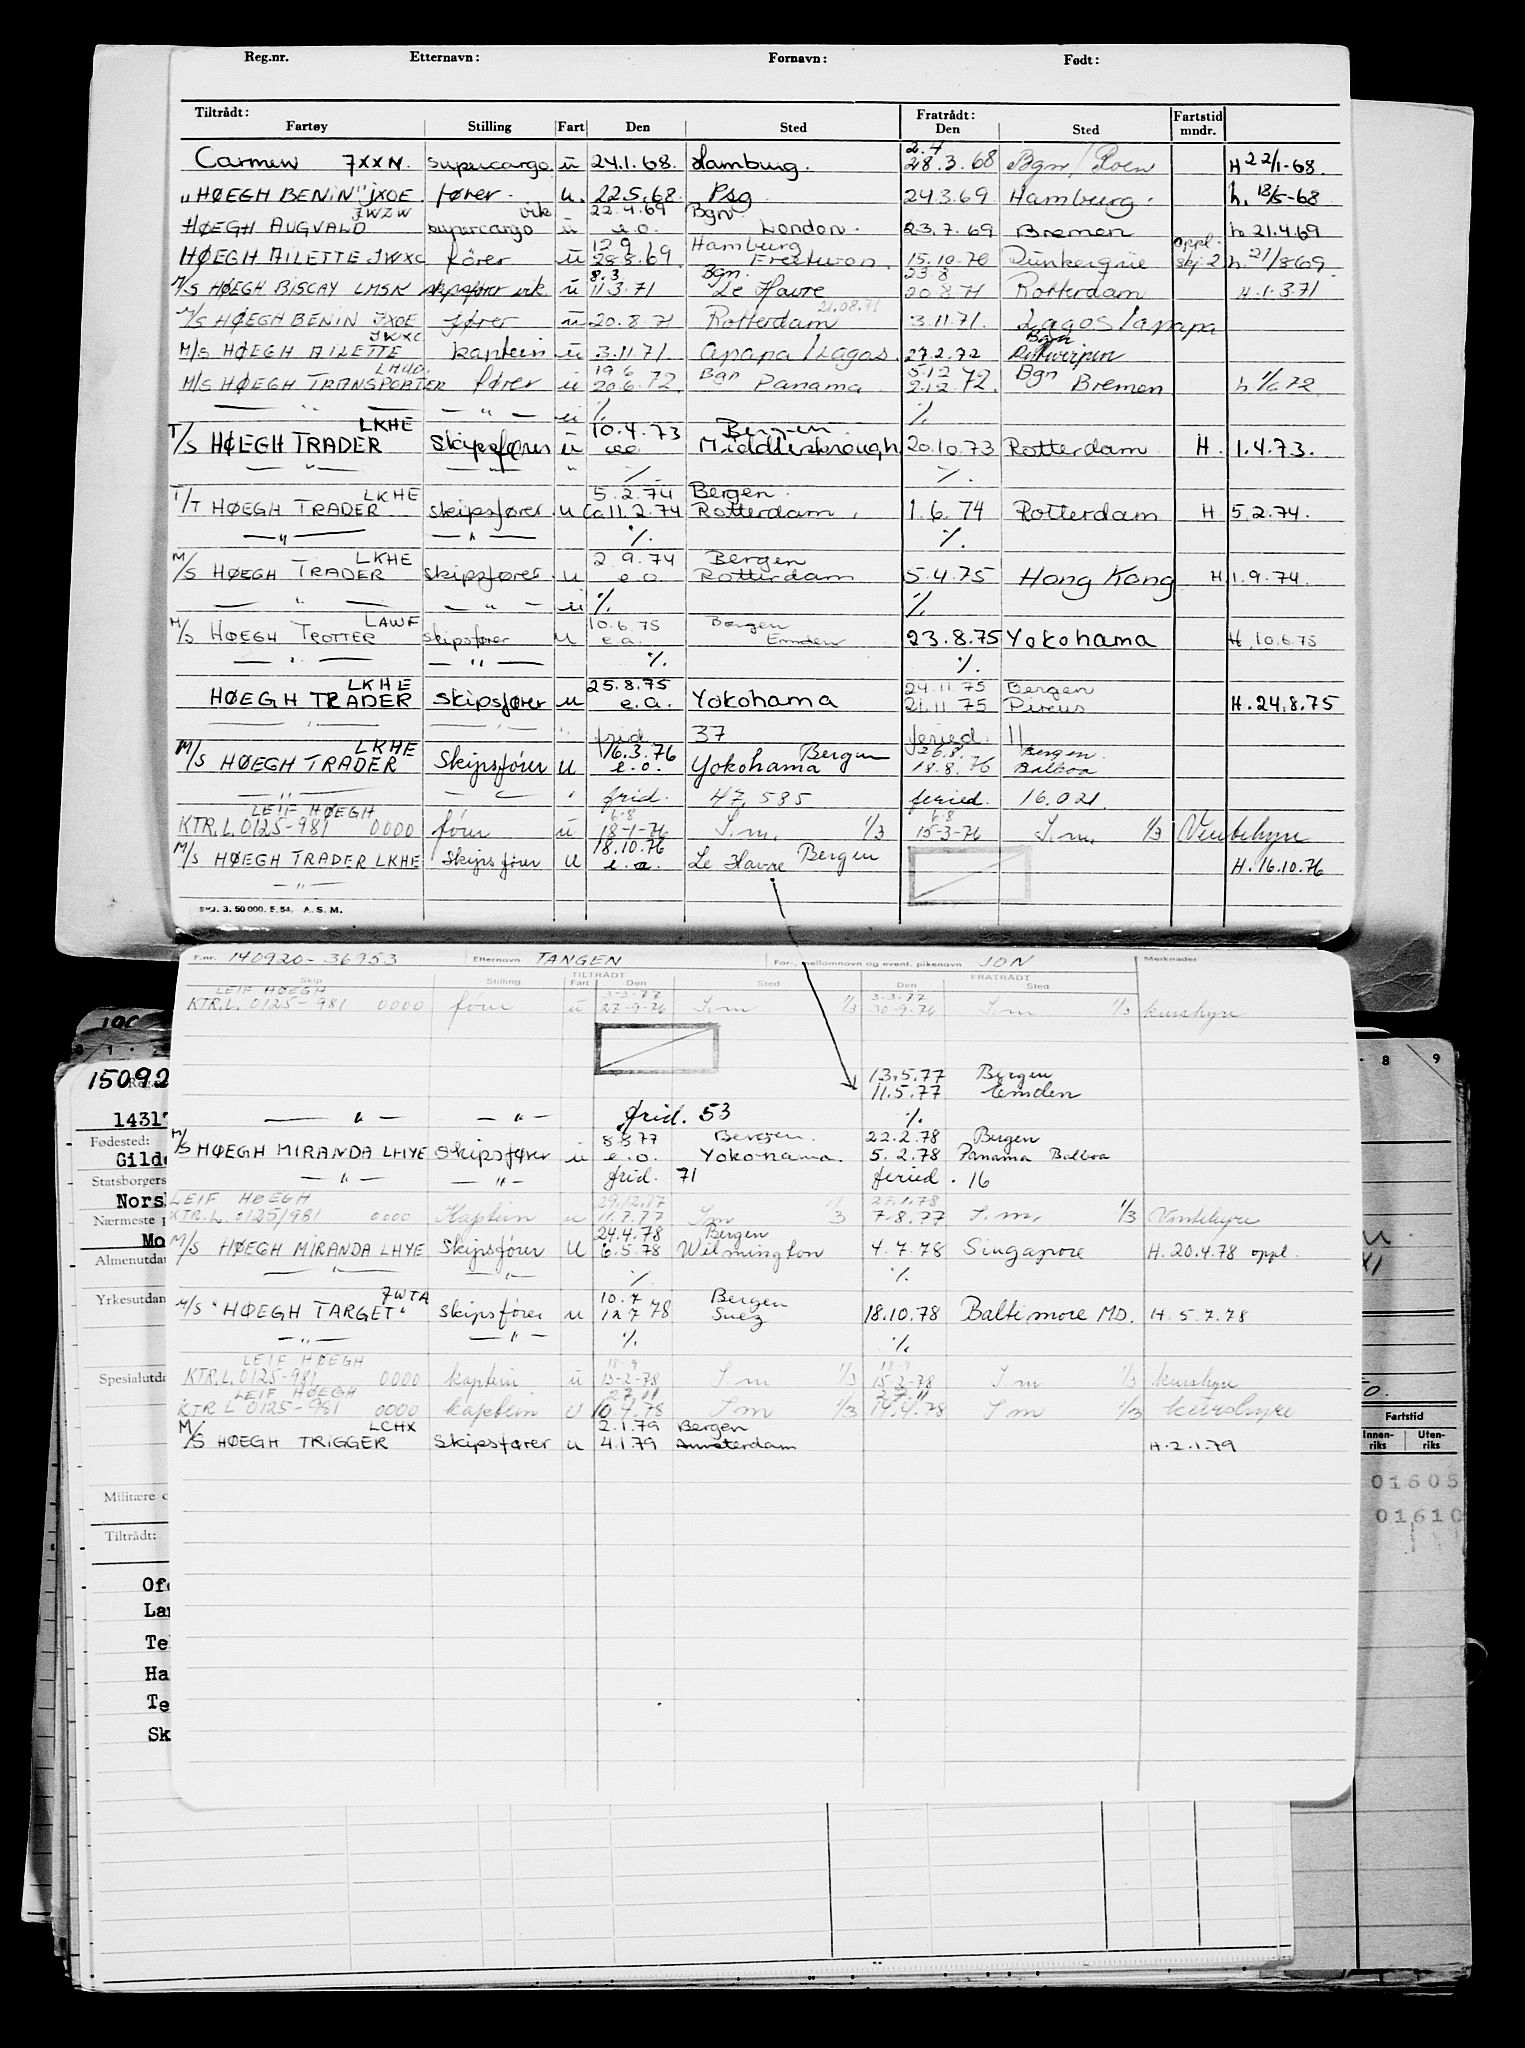 Reg.nr. Etternavn: Fornavn: Født:
Tiltrådt: Fratrådt: Fartstid
Fartøy Stilling Fart Den Sted Den Sted mndr.
2.4
Carmen 7XXN. supercargo ū 24.1.68. Hamburg. 28.3.68 Bgn/Roen H 22/1-68.
"HØEGH BENIN" JXOE fører. u. 22.5.68. Psg 24.3.69 Hamburg. h. 18/5-68
JWZW vik 22.4.69 Bgn.
HØEGH AUGVALD supercargo ū e.o. London. 23.7.69 Bremen h. 21.4.69
12.9 Hamburg oppl.
HØEGH AILETTE JWXC fører ū 28.8.69. 15.10.70 Dunkerque skj.2 h. 21/8 69.
8.3 Bgn. 23.8
M/S HØEGH BISCAY LMSK skipsfører vik ū 11.3.71 Le Havre 20.8.71 Rotterdam H.1.3.71
21.08.71
M/S HØEGH BENIN JXOE fører ū 20.8.71 Rotterdam 3.11.71. Lagos/apapa
JWXC Bgn
M/S HØEGH AILETTE kaptein ū 3.11.71 apapa/Lagos. 27.2.72 Antwerpen
19.6 Bgn 5.12 Bgn
M/S HØEGH TRANSPORTER fører ū 20.6.72 Panama. 2.12.72. Bremen h. 1/6 72
— " — — " — ū % %
LKHE 10.4.73 Bergen
T/S HØEGH TRADER Skipsfører ū e.o. Middlesbrough 20.10.73 Rotterdam H. 1.4.73.
— " — — " — " % %
LKHE 5.2.74 Bergen.
T/T HØEGH TRADER skipsfører u Ca 11.2.74 Rotterdam, 1.6.74 Rotterdam H 5.2.74.
— " — — " — % %
LKHE 2.9.74 Bergen
M/S HØEGH TRADER skipsfører. u e.o. Rotterdam 5.4.75 Hong Kong H 1.9.74.
— " — — " — ū % %
LAWF 10.6.75 Bergen
M/S HØEGH TROTTER skipsfører u e.a. Emden 23.8.75 Yokohama H. 10.6.75
— " — — " — % %
LKHE 25.8.75 24.11.75 Bergen
HØEGH TRADER Skipsfører u e.a. Yokohama 21.11.75 Pireus H. 24.8.75
— " — " " frid. 37 feried. 11
LKHE 16.3.76 Bergen 26.8. Bergen.
M/S HØEGH TRADER Skipsfører u e.o. Yokohama 18.8.76 Balboa
— " — — " — ' frid. 47,585 feried. 16.021
LEIF HØEGH 6.8 6.8
KTR.L. 0125-981 0000 fører ū 18-1-76 S.m. 1/3 15-3-76 S.m. 1/3 Ventehyre
18.10.76
M/S HØEGH TRADER LKHE Skipsfører u e.a. Le Havre Bergen H. 16.10.76
— " —
3. 50 000. 5.54. A. S. M.
F.nr. 140920-36953 Etternavn TANGEN For-, mellomnavn og event. pikenavn JON Merknader
TILTRÅDT FRATRÅDT
Skip Stilling Fart Den Sted Den Sted
LEIF HØEGH 3-3-77 3.3.77
KTR.L. 0125-981 0000 fører ū 27-9-76 S.m 1/3 30-9-76 S.m 1/3 kurshyre
13.5.77 Bergen
11.5.77 Emden
— " — — " — frid. 53 %
8.8.77 Bergen. 22.2.78 Bergen
M/S HØEGH MIRANDA LHYE Skipsfører u e.o. Yokohama. 5.2.78 Panama Balboa
— " — — " — frid. 71 feried. 16
LEIF HØEGH 29.12.77 27.1.78
KTR.L. 0125/981 0000 Kaptein u 11.7.77 S.m 1/3 7-8.77 S.m. 1/3 Ventehyre
24.4.78 Bergen
M/S HØEGH MIRANDA LHYE Skipsfører u 6.5.78 Wilmington 4.7.78 Singapore H. 20.4.78 oppl.
— " — — " — % %
JWTA 10.7 Bergen
M/S "HØEGH TARGET" Skipsfører u 12.7 78 Suez 18.10.78 Baltimore MD. H. 5.7.78
— " — — " — % %
LEIF HØEGH 18-9 18-9
KTR.L. 0125-981 0000 kaptein ū 13-2-78 S.m 1/3 15-2-78 S.m 1/3 kurshyre
LEIF HØEGH 27.11 27.11
KTR L 0125-981 0000 kaptein u 10.4.78 S.m 1/3 14.4.78 S.m 1/3 kurshyre
LCHX 2.1.79 Bergen
M/S HØEGH TRIGGER Skipsfører u 4.1.79 Amsterdam H. 2.1.79
8 9
15092
1431
Fødested:
Gild
Statsborgers
Nors
Nærmeste p
Mo
Almenutda
Yrkesutdan
Spesialutda
Militære
Tiltrådt:
Fartstid
Innenriks Utenriks
01605
01610
Ofo
Lar
Tel
Ha
Te
Sk